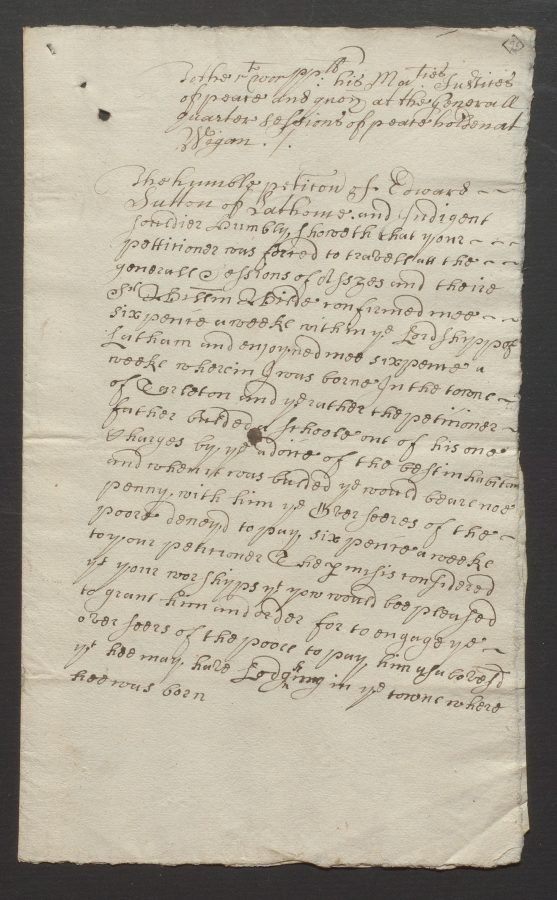 To the rt worpplls his Maties Justices
of peace and quor at the Generall
quarter sessions of peace holden at
Wigan ./.
The humble petition of Edward
Sutton of Lathome and Indigent
souldier Humbly showeth that your
pettitioner was forced to travell att the
generall Sessions of Asszes and there
Sr William Wilde confirmed mee
sixpence a weeke within ye Lordshypp of
Latham and enjoyned mee sixpence a
weeke wherein I was borne In the towne
of Tarleton and ye rather the petitioner
father bulded a schoole out of his one
Charges by ye advice of the best inhabitan
and when it was bulded ye would beare noe
penny with him ye Overseeres of the
poore deneyd to pay six pence a weeke
to your petitioner The p misis considered
yt your worshyps yt yow would bee pleased
to grant him and order for to engage ye
overseers of the poore to pay him as abovesd
yt hee may have Lodghing in ye towne where
hee was born